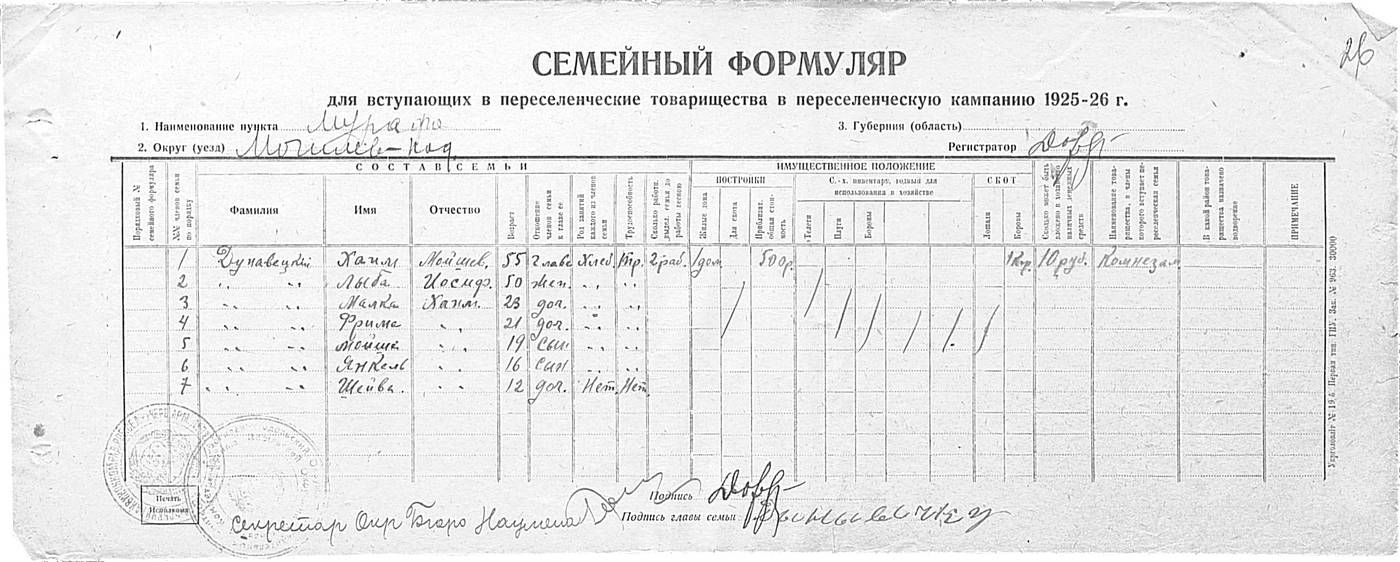 26
СЕМЕЙНЫЙ ФОРМУЛЯР
для вступающих в переселенческие товарищества в переселенческую кампанию 1925-26 г.
1. Наименование пункта Мурафа 3. Губерния (область)
2. Округ (уезд) Могилев-Под Регистратор
СОСТАВ СЕМЬИ ИМУЩЕСТВЕННОЕ ПОЛОЖЕНИЕ
ПОСТРОЙКИ С.-х. инвентарь, годный для использования в хозяйстве СКОТ
Порядковый № семейного формуляра №№ членов семьи по порядку Фамилия Имя Отчество Возраст Отношение членов семьи к главе ее Род занятий каждого из членов семьи Трудоспособность Жилые дома Для скота Приблизит. общая стоимость Телеги Плуги Бороны Лошади Коровы Сколько может быть вложено в хозяйство наличных денежных средств Наименование товарищества, в члены которого вступает переселенческая семья В какой район товарищества назначено водворение ПРИМЕЧАНИЕ
1 Дунавецкий Хаим Мойшев. 55 Глава Хлеб. Тр. 2 раб. 1 дом 500 р. 1 Кор. 10 руб. Комнезам
2 " " Лыба Иосиф. 50 жен. " "
3 " " Малка Хаим. 23 доч. " "
4 " " Фрима " " 21 доч. " "
5 " " Мойша " " 19 сын " "
6 " " Янкель " " 16 сын " "
7 " " Шейва " " 12 доч. Нет Нет
Печать Исполкома
Подпись
Секретар Окр Бюро Нацмена
Подпись главы семьи
Укрголовліт № 19,6. Первая тип. ГПУ. Зак. № 963. 30000